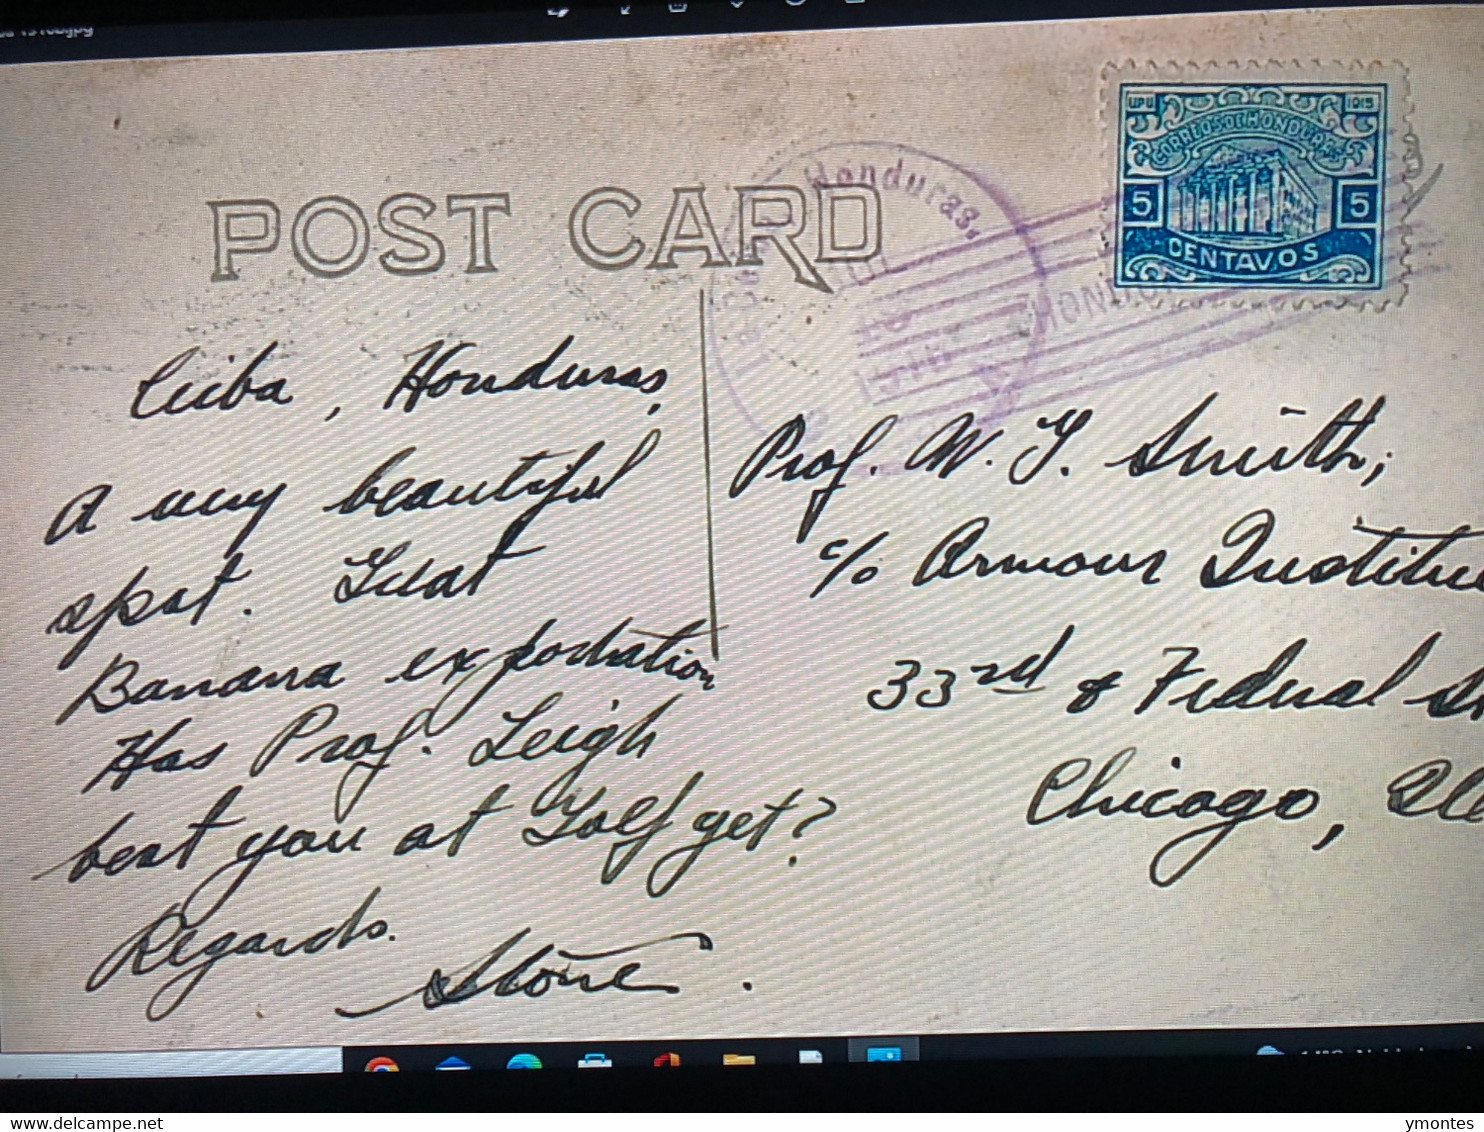 POST CARD
Honduras.
UPU 1915
CORREOS DE HONDURAS
5 5
CENTAVOS
Ceiba, Honduras,
A very beautiful
spot. Great
Banana exportation
Has Prof. Leigh
beat you at Golf yet?
Regards.
Stone.
Prof. W. G. Smith,
c/o Armour Institu
33rd & Federal
Chicago, Ill
delcampe.net
ymontes